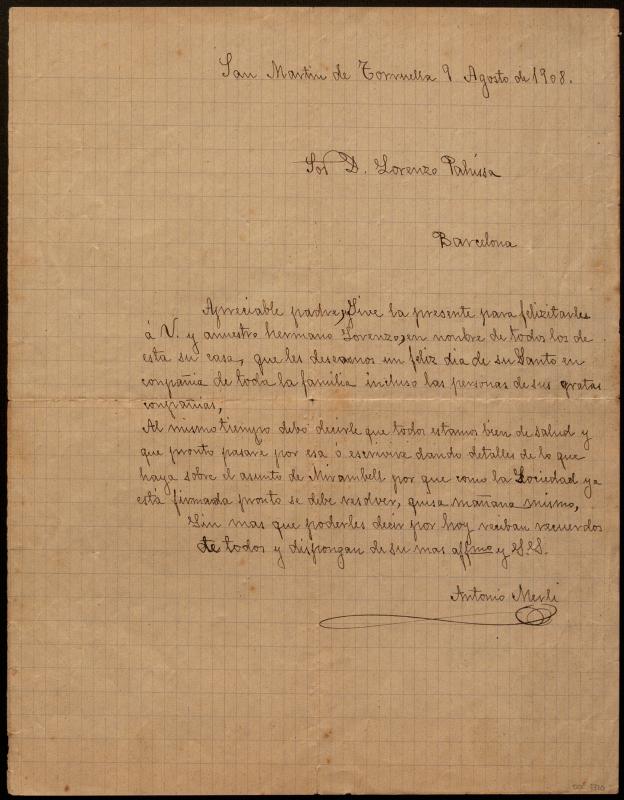 San Martin de Torruella 9 Agosto de 1908.
Sor D. Lorenzo Pahissa
Barcelona
Apreciable padre, Sive la presente para felizitarles
á V. y anuestro hermano Lorenzo, en nonbre de todos los de
esta su casa, que les deseamos un feliz dia de su Santo en
conpañia de toda la familia incluso las personas de sus gratas
conpañias,
Al mismo tiempo debo decirle que todos estamos bien de salud y
que pronto pasare por esa ó escrivire dando detalles de lo que
haya sobre el asunto de Mirambell por que como la Sociedad ya
está firmada pronto se debe resolver, quisa mañana mismo,
Sin mas que poderles decir por hoy reciban recuerdos
de todos y dispongan de su mas affmo y S.S.
Antonio Merli